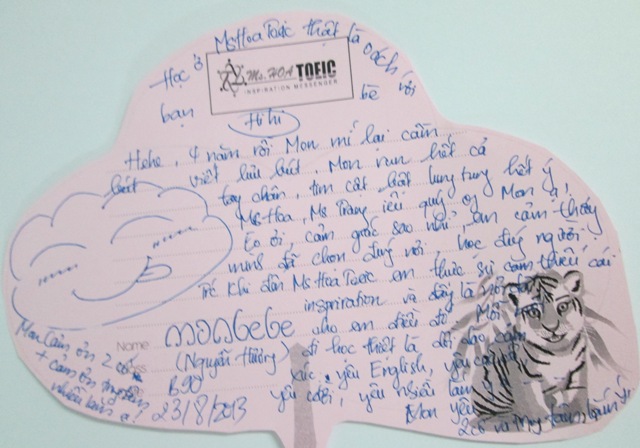 Học ở Ms Hoa Toeic thật là cách với
bạn bè
Ms. HOA TOEIC
INSPIRATION MESSENGER
Hi hi
Hehe, 4 năm rồi Mon mí lại cầm
bút viết lưu bút. Mon run hết cả
tay chân, tim cứ lung tung hết ý
Ms Hoa, Ms Trang iêu quý of Mon ạ!
Eo ôi, cảm giác sao nhỉ, em cảm thấy
mình đã chọn đúng nơi, học đúng người!
Trc khi đến Ms Hoa Toeic em thực sự cảm thiếu cái
inspriration và đây là nơi
cho em điều đó. Mỗi
đi học thiệt là dồi dào cảm
xúc, yêu English, yêu
yêu đời, yêu nhiều lắm ý
Mon yêu
2 cô và
Name monbebe
(Nguyễn Hường)
Class B90
23/8/2013
Mon cảm ơn 2 cô
+ cảm ơn
nhiều lắm ạ!